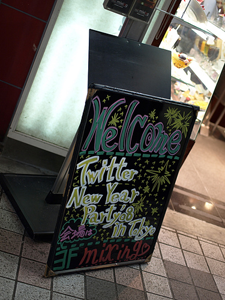 Welcome
Twitter
New Year
Party'8
in Tokyo
会場は
mixing